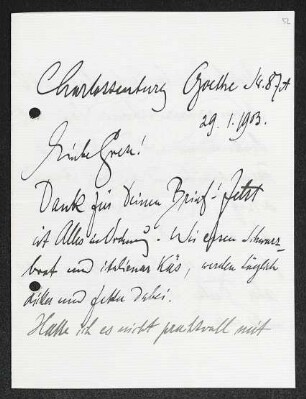 52
Charlottenburg Goethe Str. 87 II
29. 1. 1903.
Liebe Grete!
Dank für Deinen Brief! Jetzt
ist Alles in Ordnung. Wir essen Schwarz-
brot und italiener Käs, werden täglich
dicker und fetter dabei.
Hatte ich es nicht prachtvoll mit